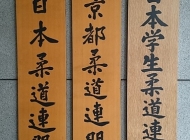 日本学生柔道連
京都柔道連盟
日本柔道連盟